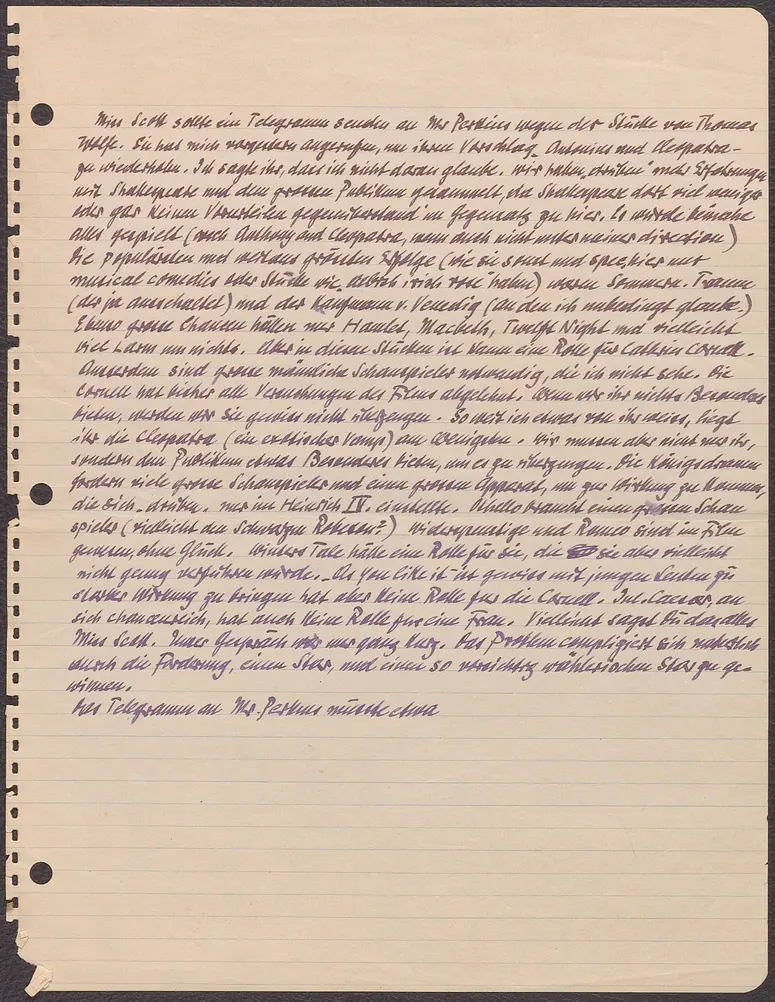 Miss Scott sollte ein Telegramm senden an Mr Perkins wegen der Stücke von Thomas
Wolfe. Sie hat mich vorgestern angerufen, um ihren Vorschlag Antonius und Cleopatra -
zu wiederholen. Ich sagte ihr, dass ich nicht daran glaube. Wir haben "drüben" mehr Erfahrungen
mit Shakespeare und dem grossen Publikum gesammelt, da Shakespeare dort viel weniger
oder gar keinen Vorurteilen gegenüberstand im Gegensatz zu hier. Es wurde beinahe
alles gespielt (auch Anthony and Cleopatra, wenn auch nicht unter meiner direction)
Die populärsten und weitaus grössten Erfolge (wie sie sonst und hier nur
musical comedies oder Stücke wie "Abie's irish rose" haben) waren Sommern. Traum
(der ja ausschaltet) und der Kaufmann v. Venedig (an den ich unbedingt glaube.)
Ebenso grosse Chancen hätten nur Hamlet, Macbeth, Twelft Night und vielleicht
viel Lärm um nichts. Aber in diesen Stücken ist kaum eine Rolle für Cathrin Cornell.
Ausserdem sind grosse männliche Schauspieler notwendig, die ich nicht sehe. Die
Cornell hat bisher alle Versuchungen des Films abgelehnt. Wenn wir ihr nichts Besonderes
bieten, werden wir sie gewiss nicht überzeugen. Soweit ich etwas von ihr weiss, liegt
ihr die Cleopatra (ein exotischer Vamp) am Wenigsten. Wir müssen aber nicht nur ihr,
sondern dem Publikum etwas Besonderes bieten, um es zu überzeugen. Die Königsdramen
fordern viele grosse Schauspieler und einen grossen Apparat, um zur Wirkung zu kommen,
die sich drüben nur im Heinrich IV. einstellte. Othello braucht einen grossen Schau
spieler (vielleicht den Schwarzen Robeson?) Widerspenstige und Romeo sind im Film
gewesen, ohne Glück. Winters Tale hätte eine Rolle für sie, die sie aber vielleicht
nicht genug verführen würde. As you like it ist gewiss mit jungen Leuten zu
starker Wirkung zu bringen hat aber keine Rolle für die Cornell. Jul. Caesar, an
sich chancenreich, hat auch keine Rolle für eine Frau. Vielleicht sagst Du das alles
Miss Scott. Unser Gespräch war nur ganz kurz. Das Problem compliziert sich natürlich
durch die Forderung, einen Star, und einen so vorsichtig wählerischen Star zu ge-
winnen.
Das Telegramm an Mr. Perkins müsste etwa